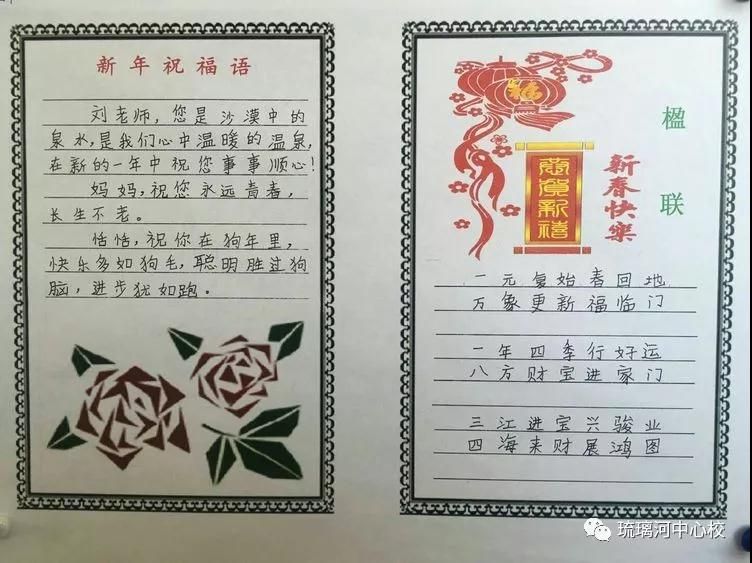 新年祝福语
刘老师，您是沙漠中的
泉水，是我们心中温暖的温泉，
在新的一年中祝您事事顺心！
妈妈，祝您永远青春，
长生不老。
恬恬，祝你在狗年里，
快乐多如狗毛，聪明胜过狗
脑，进步犹如跑。
福
恭贺新禧
新春快樂
楹联
一元复始春回地
万象更新福临门
一年四季行好运
八方财宝进家门
三江进宝兴骏业
四海来财展鸿图
琉璃河中心校